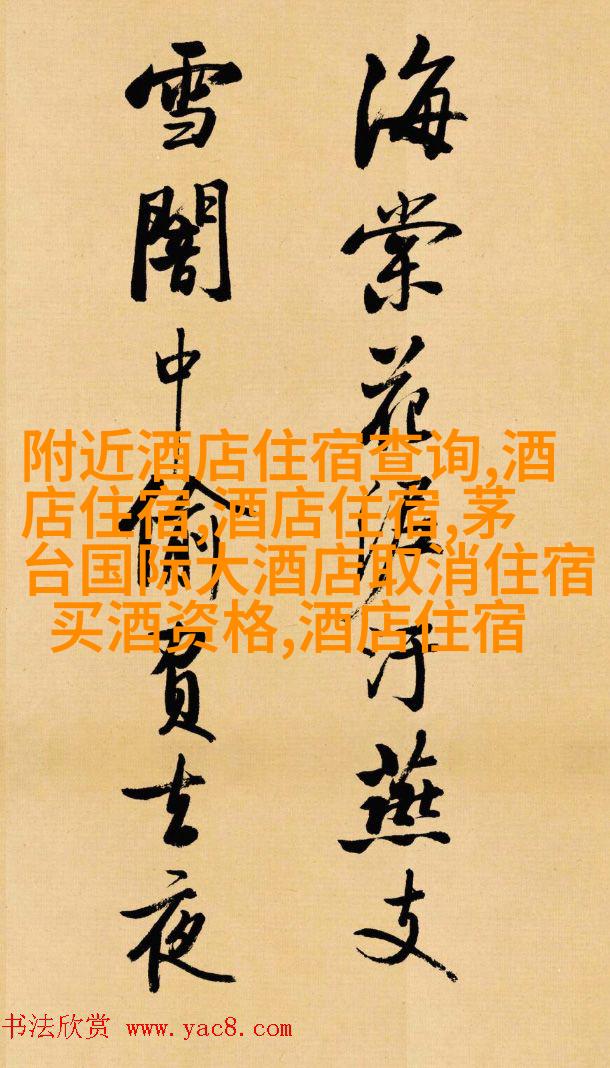 海棠花泥汙燕支
雪闇中偷負去夜
附近酒店住宿查询,酒
店住宿,酒店住宿,茅
台国际大酒店取消住宿
买酒资格,酒店住宿
书法欣赏 www.yac8.com